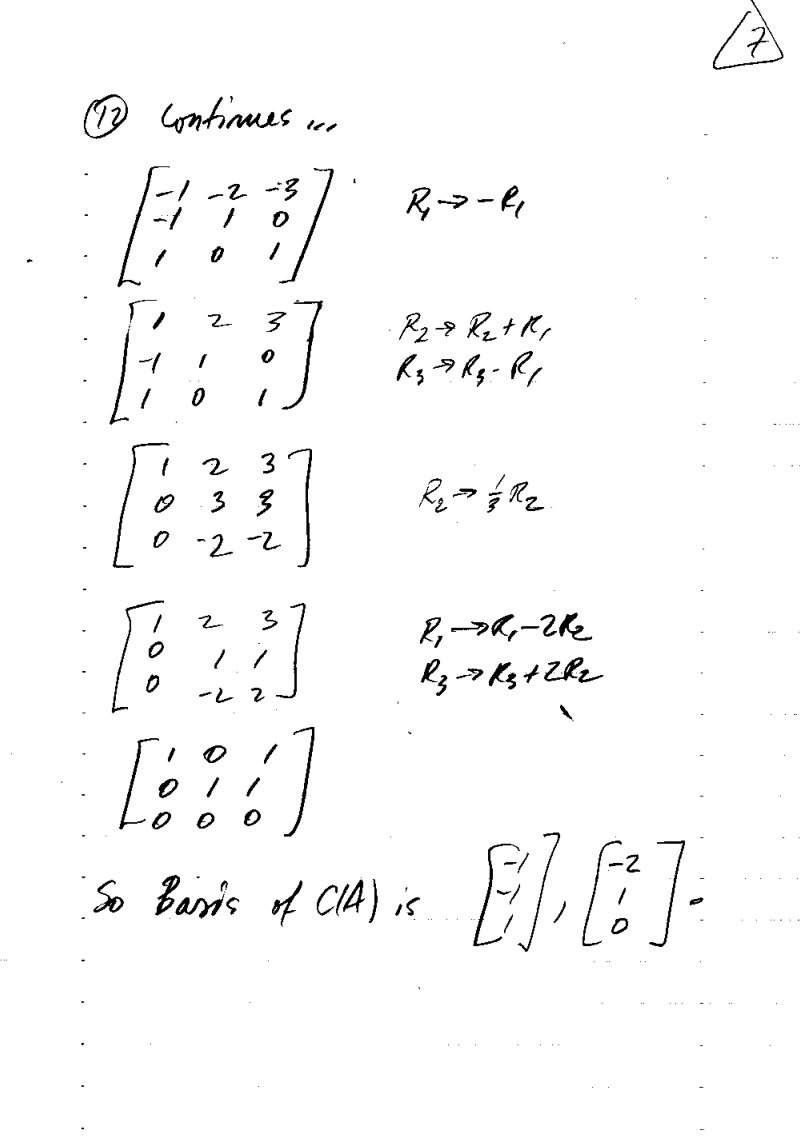 7
(12) Continues ...
[-1 -2 -3
-1 1 0
1 0 1] R₁ → -R₁
[1 2 3
-1 1 0
1 0 1] R₂ → R₂ + R₁
R₃ → R₃ - R₁
[1 2 3
0 3 3
0 -2 -2] R₂ → 1/3 R₂
[1 2 3
0 1 1
0 -2 2] R₁ → R₁ - 2R₂
R₃ → R₃ + 2R₂
[1 0 1
0 1 1
0 0 0]
So Basis of C(A) is [-1
-1
1], [-2
1
0].